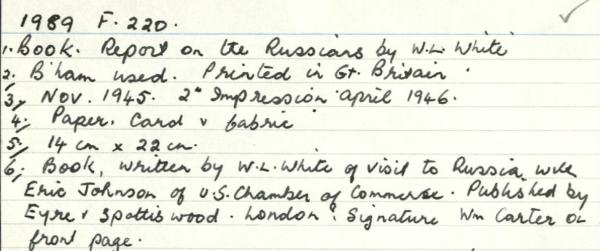 1989 F. 220.
1. Book. Report on the Russians by W.L. White
2. B'ham used. Printed in Gt. Britain
3, Nov. 1945. 2nd Impression April 1946.
4. Paper. Card & fabric
5. 14 cm x 22 cm.
6, Book, written by W.L. White of visit to Russia with
Eric Johnson of U.S. Chamber of Commerse. Published by
Eyre & Spottiswood. London. Signature Wm Carter on
front page.